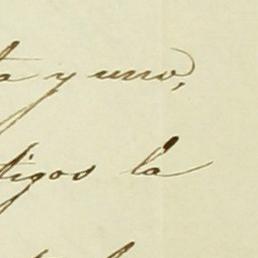 ta y uno,
tigos la